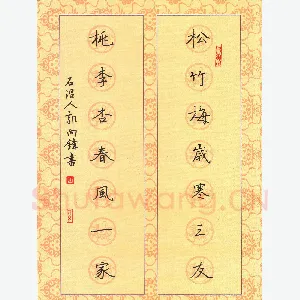 松竹梅歳寒三友
桃李杏春風一家
石沼人郭向鋒書
Shufawang.cn